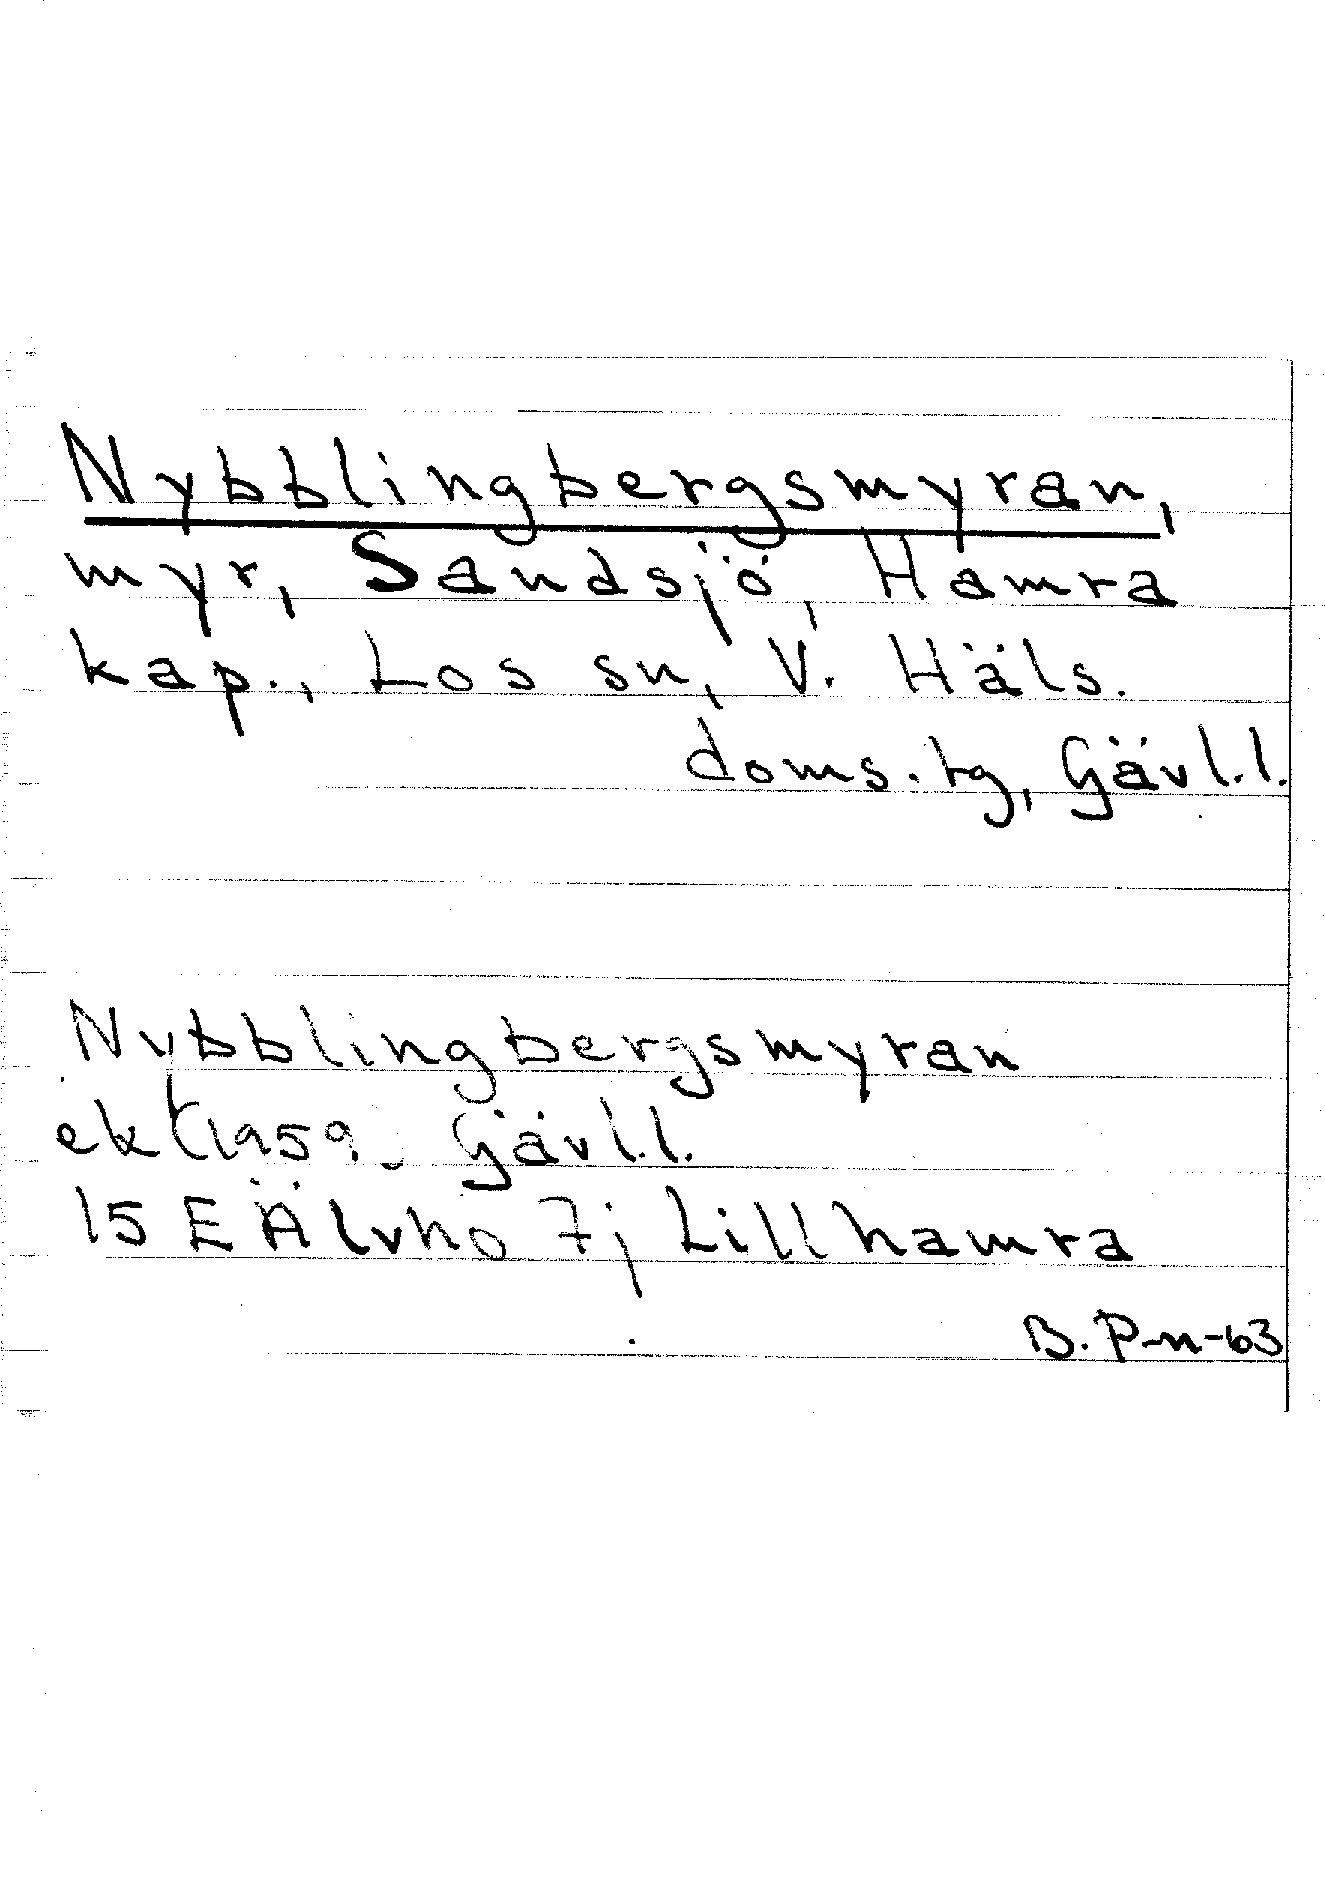 Nybblingbergsmyran,
myr, Sandsjö, Hamra
kap., Los sn, V. Häls.
doms.tg, Gävl.l.
Nybblingbergsmyran
ek(1959. Gävl.l.
15 E Älvho 7j Lillhamra
B. P-n-63